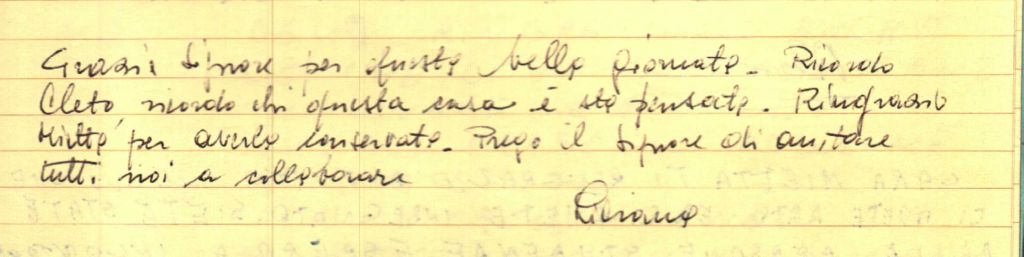 Grazie Signore per questa bella giornata. Ricordo
Cleto, ricordo chi questa casa è sta pensata. Ringrazio
Mietta per averla conservata. Prego il Signore di aiutare
tutti noi a collaborare
Liviana